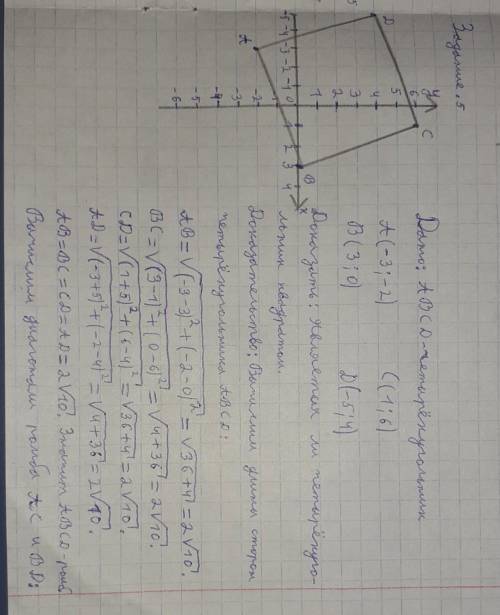 Задание. 5
Дано: ABCD-четырёхугольник
A(-3;-2) C(1;6)
B(3;0) D(-5;4)
Доказать: Является ли четырёхуго-
льник квадратом.
Доказательство: Вычислим длины сторон
четырёхугольника ABCD:
AB=√(-3-3)²+(-2-0)²=√36+4=2√10.
BC=√(3-1)²+(0-6)²=√4+36=2√10.
CD=√(1+5)²+(6-4)²=√36+4=2√10.
AD=√(-3+5)²+(-2-4)²=√4+36=2√10.
AB=BC=CD=AD=2√10. Значит ABCD-ромб
Вычислим диагонали ромба AC и BD:
y
6
5
4
3
2
1
0
-5 -4 -3 -2 -1
2 3 4
x
-2
-3
-4
-5
-6
A
B
C
D